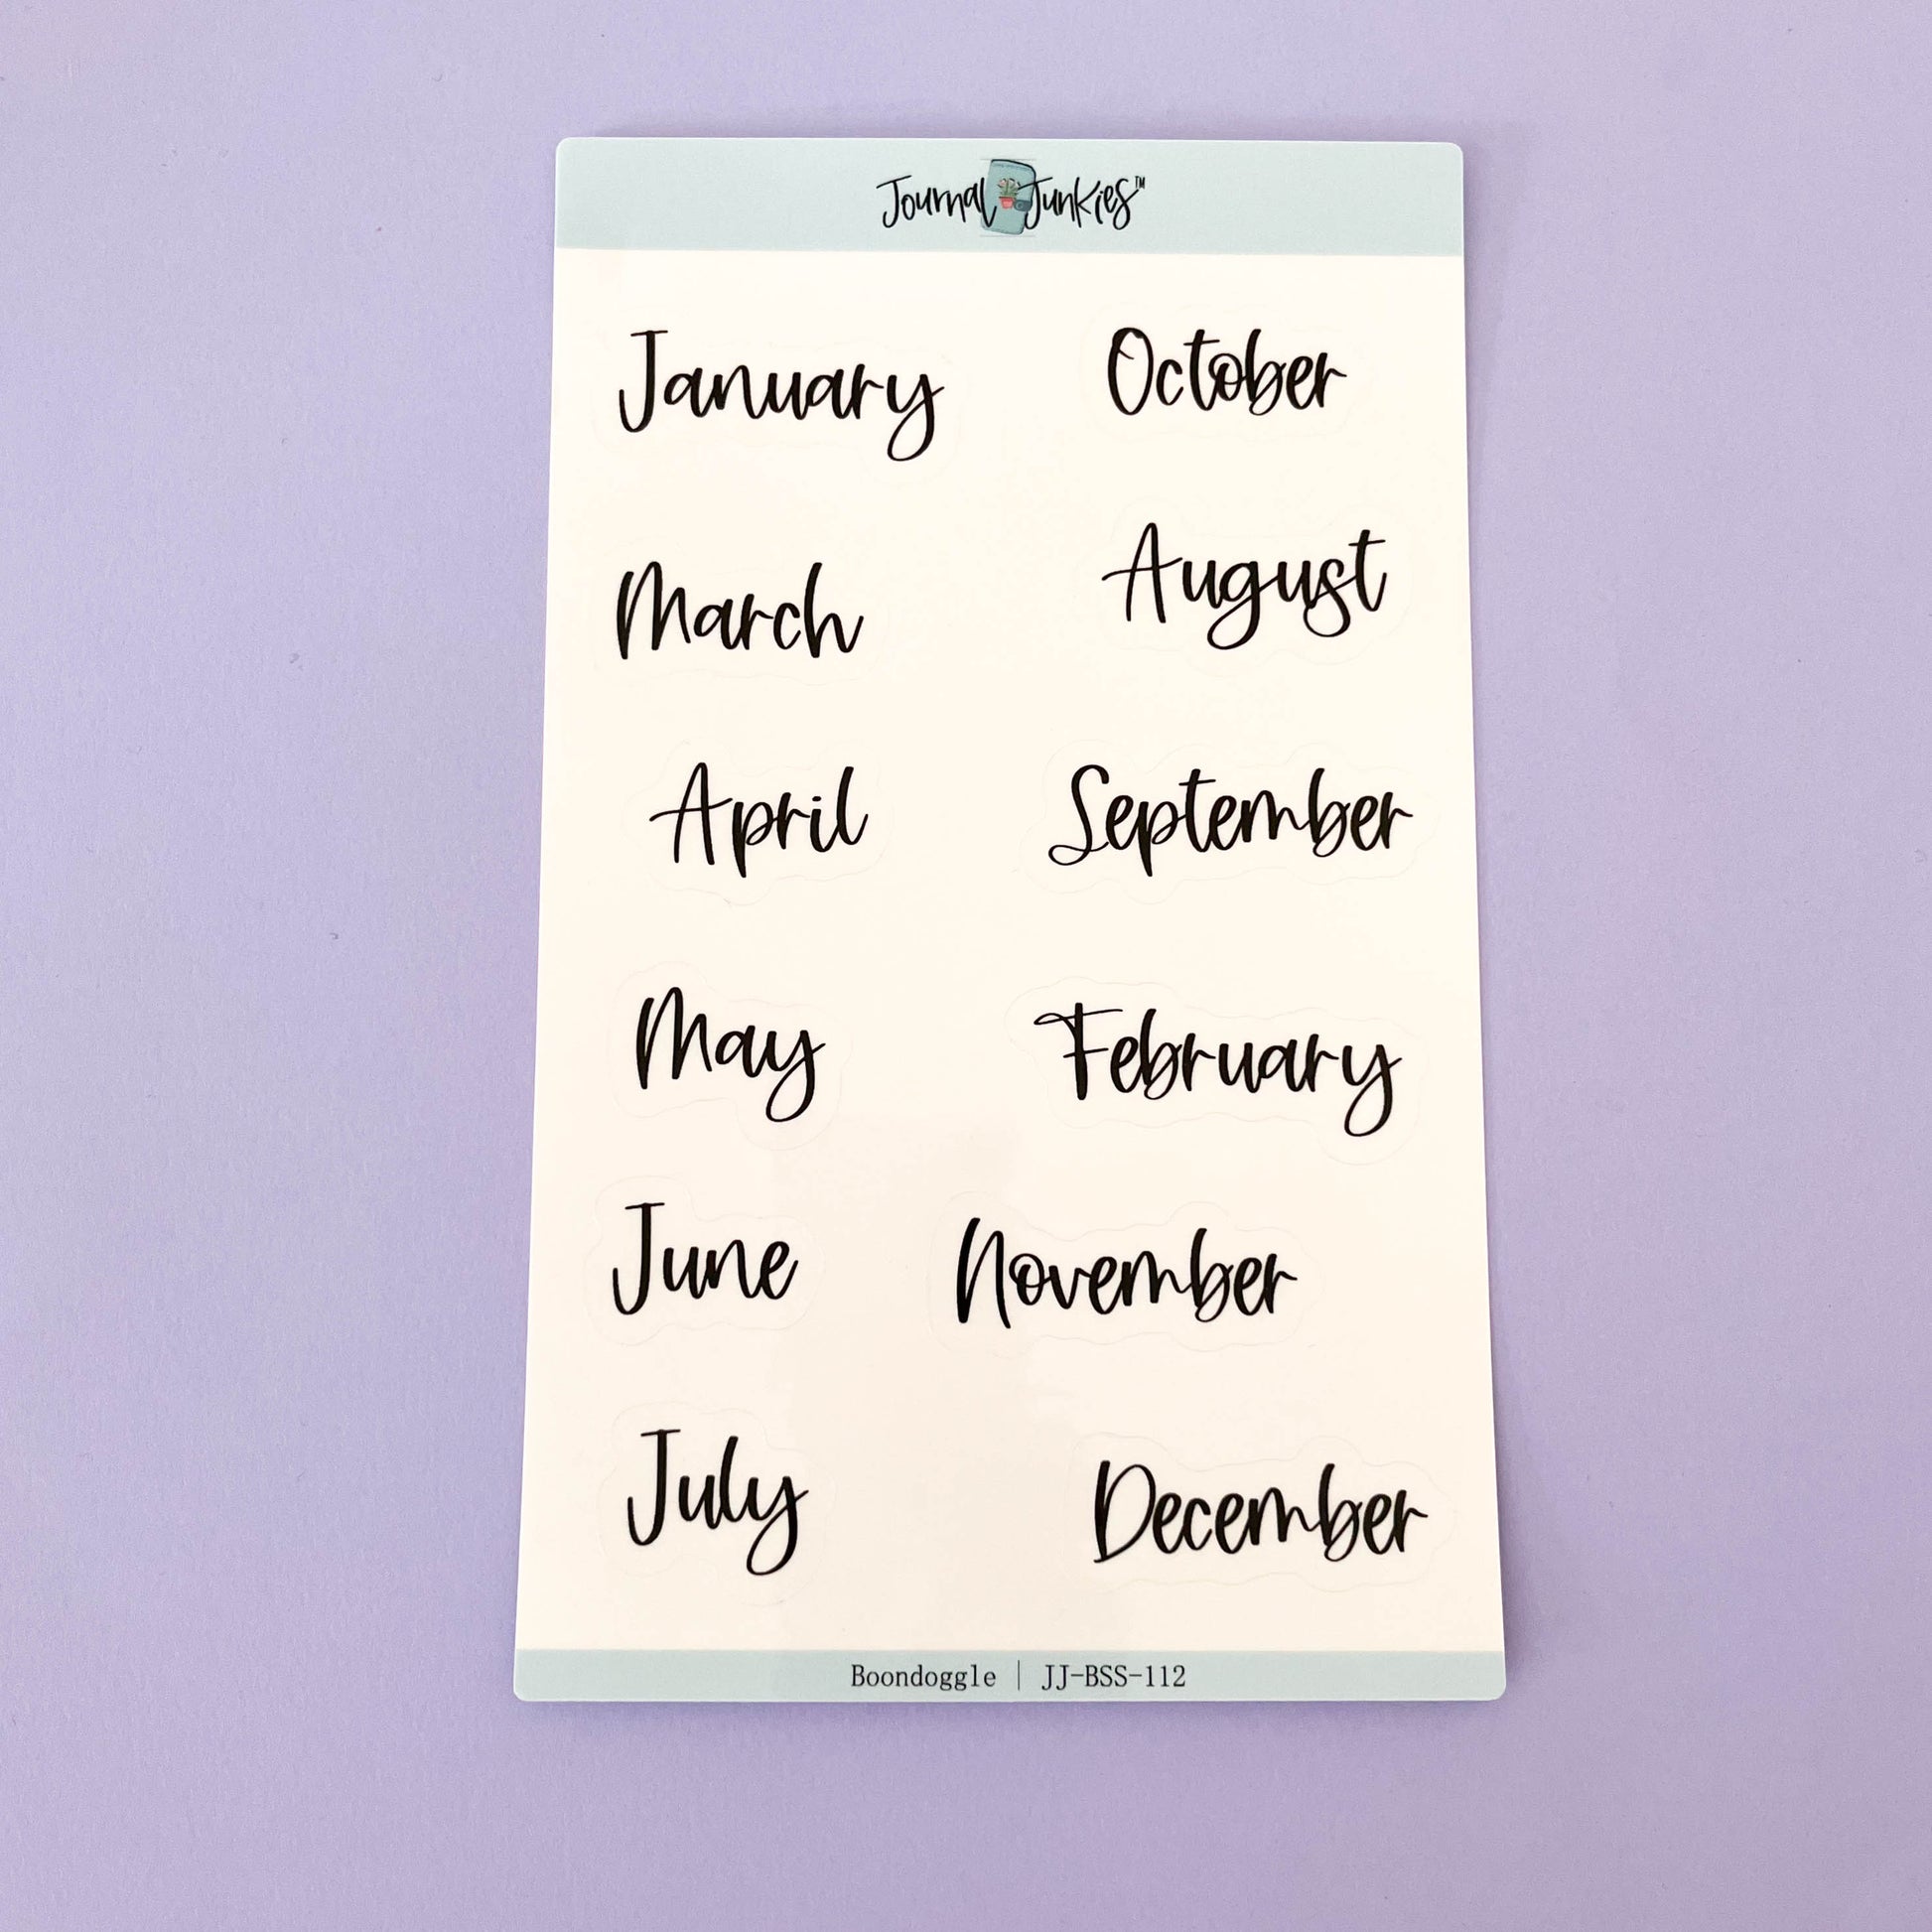 Journal Junkies™
January October
March August
April September
May February
June November
July December
Boondoggle | JJ-BSS-112